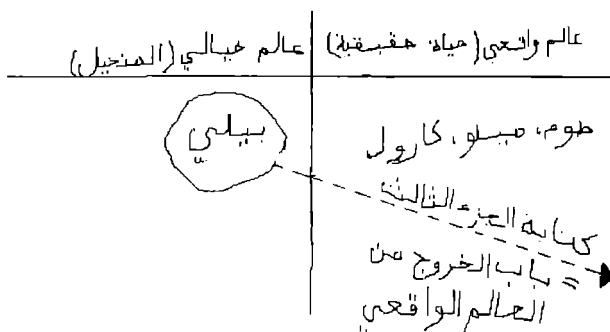 عالم واقعي (حياة حقيقية)
عالم خيالي (المتخيل)
طوم، ميلو، كارول
كتابة الجزء الثالث
= باب الخروج من
العالم الواقعي
بيلي